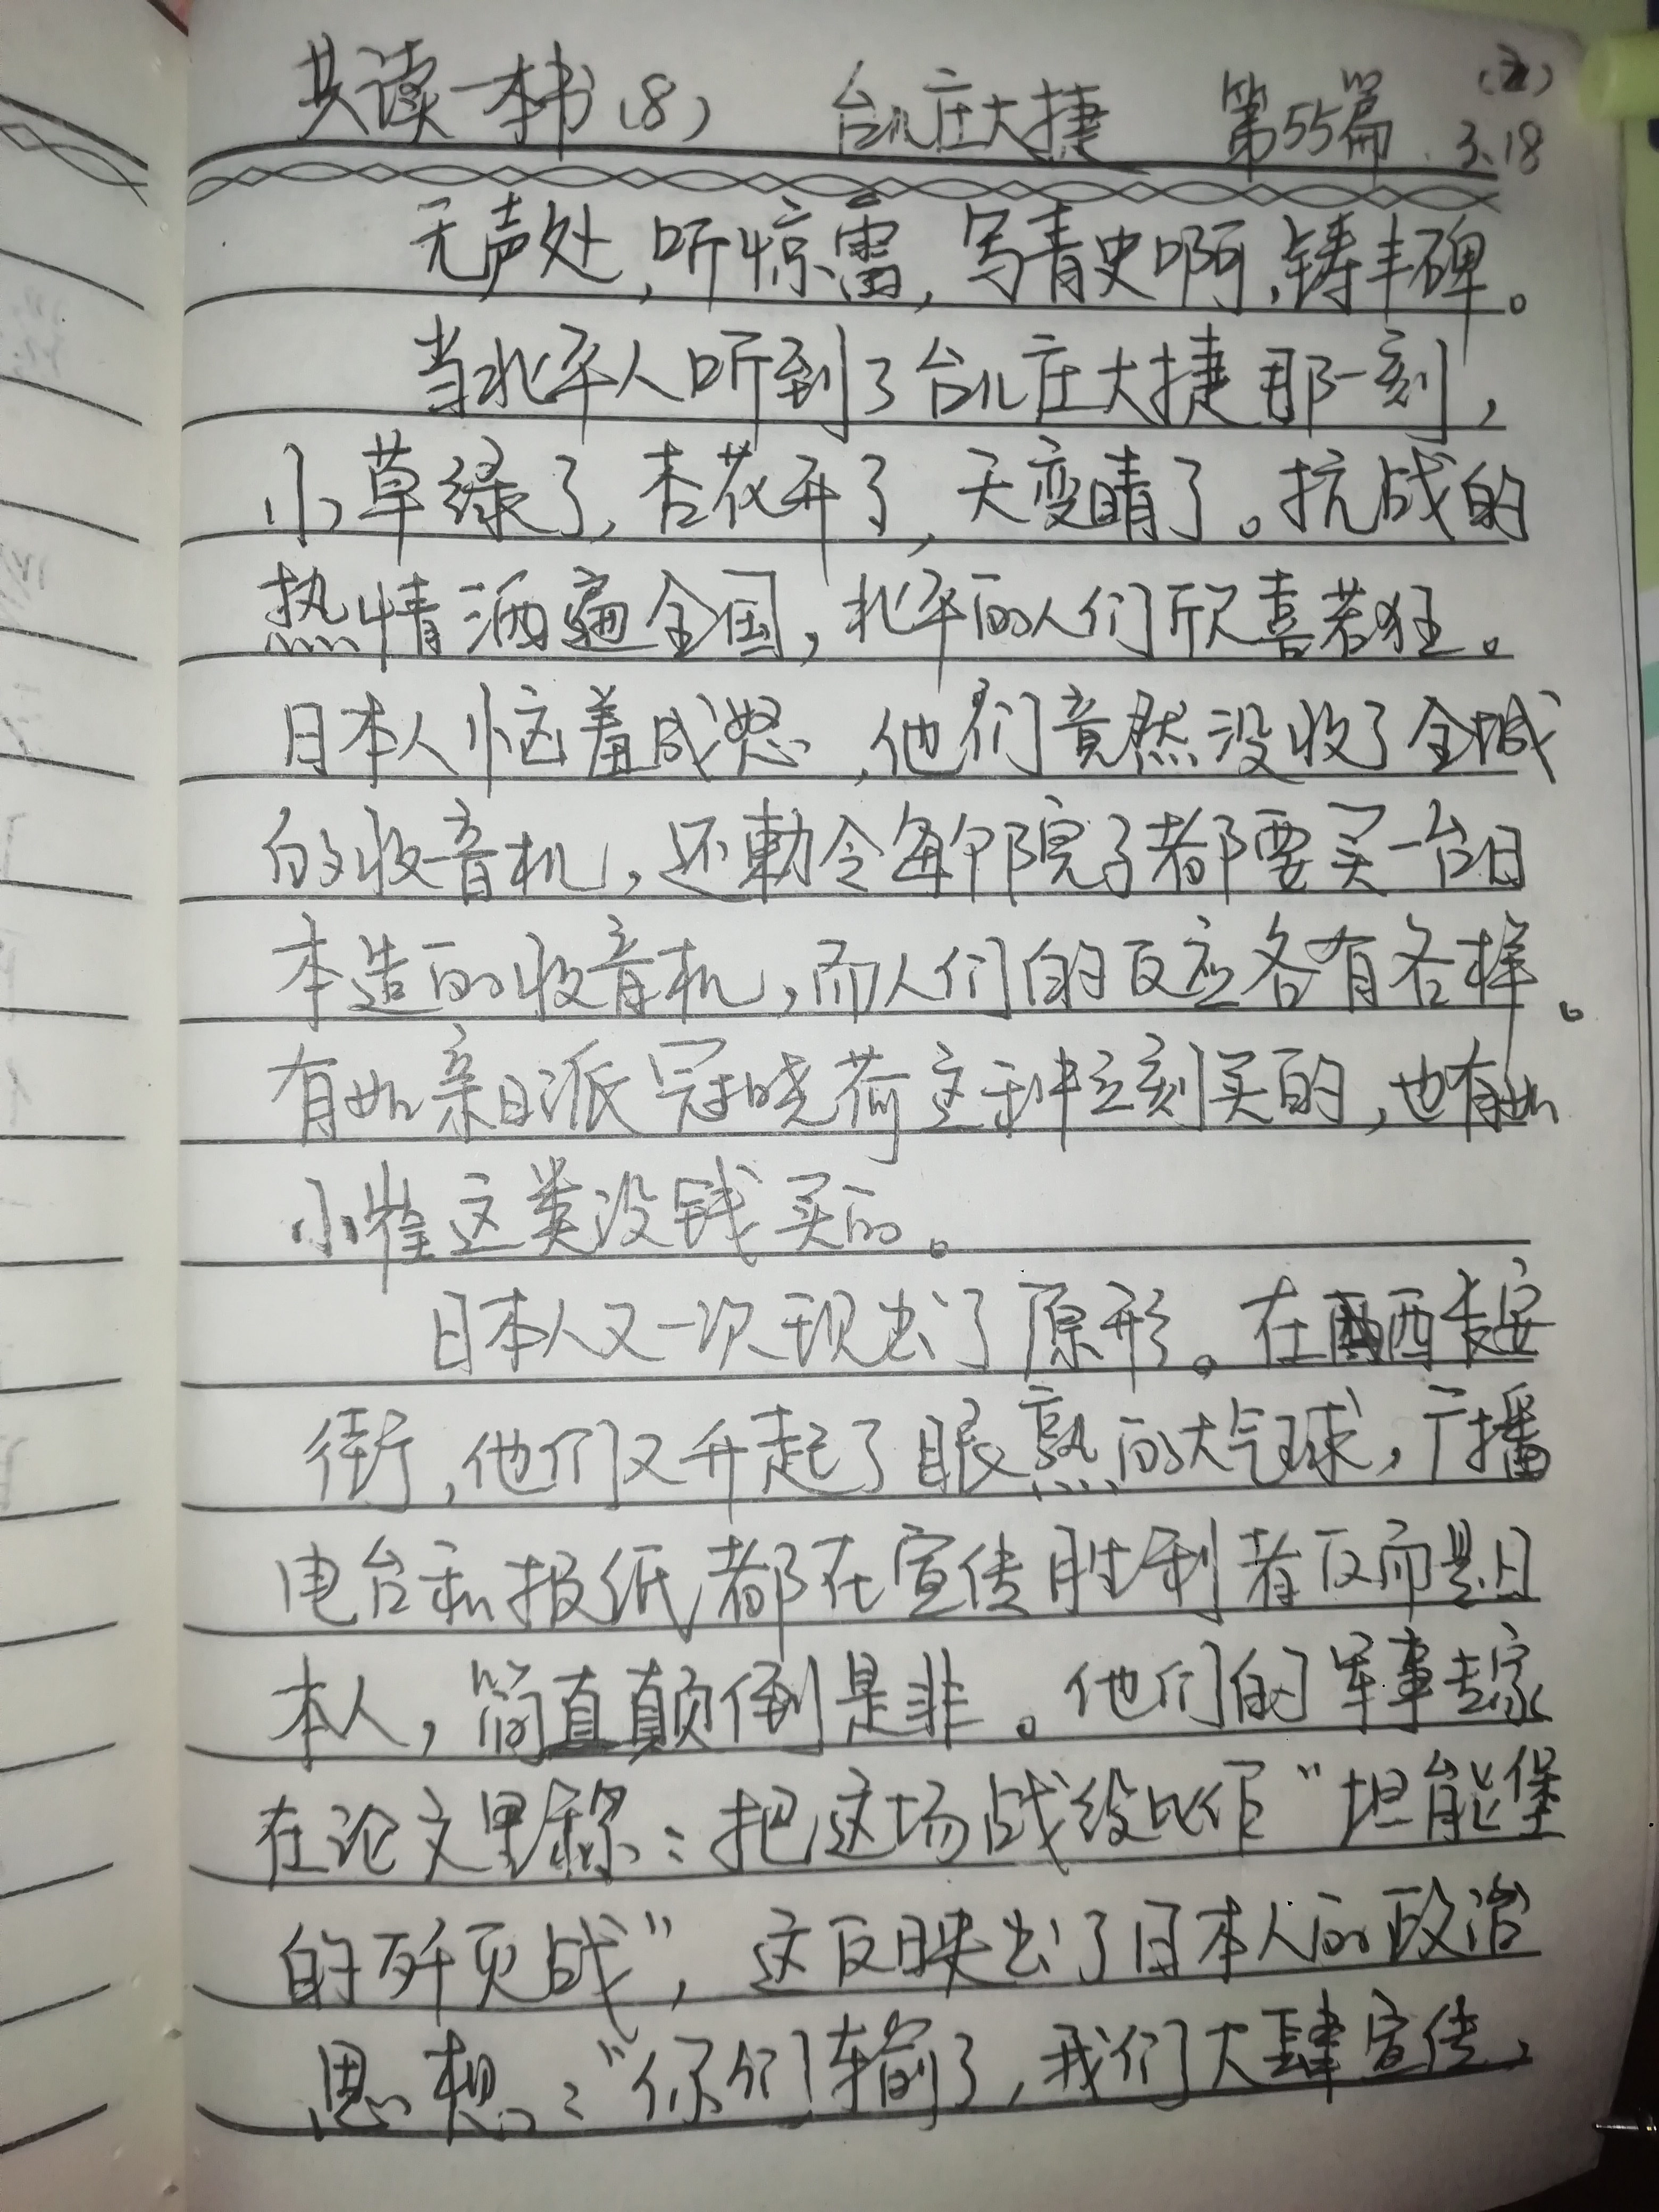 共读一本书(8) 台儿庄大捷 第55篇 3.18
无声处,听惊雷,写青史啊,铸丰碑。
当北平人听到了台儿庄大捷那一刻,
小草绿了,杏花开了,天变晴了。抗战的
热情洒遍全国,北平的人们欣喜若狂。
日本人恼羞成怒,他们竟然没收了全城
的收音机,还勒令每个院子都要买一台日
本造的收音机,而人们的反应各有各样。
有如亲日派冠晓荷这种立刻买的,也有如
小崔这类没钱买的。
日本人又一次现出了原形。在西长安
街,他们又升起了眼熟的大气球,广播
电台和报纸都在宣传胜利者反而是日
本人,简直颠倒是非。他们的军事专家
在论文里称:把这场战役比作"坦能堡
的歼灭战",这反映出了日本人的政治
思想:"你们输了,我们大肆宣传,